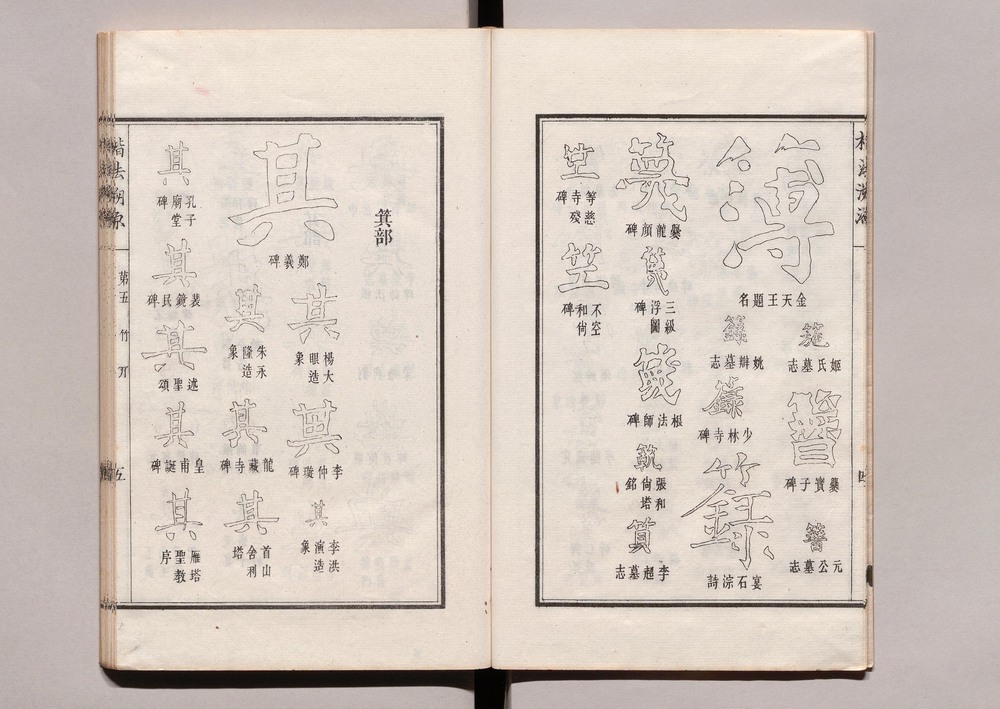 簿
金天王題名
姬氏墓志
爨寶子碑
元公墓志
籙
姚辯墓志
籙
少林寺碑
籙
宴石淙詩
爨龍顏碑
三級浮圖碑
根法師碑
張和尚塔銘
李超墓志
等慈寺殘碑
不空和尚碑
箕部
其
鄭羲碑
其
楊大眼造象
其
李仲璇碑
其
李洪演造象
其
朱永隆造象
其
龍藏寺碑
其
首山舍利塔
其
孔子廟堂碑
其
裴鏡民碑
其
述聖頌
其
皇甫誕碑
其
雁塔聖教序
楷法溯原
第五 竹 丌
五